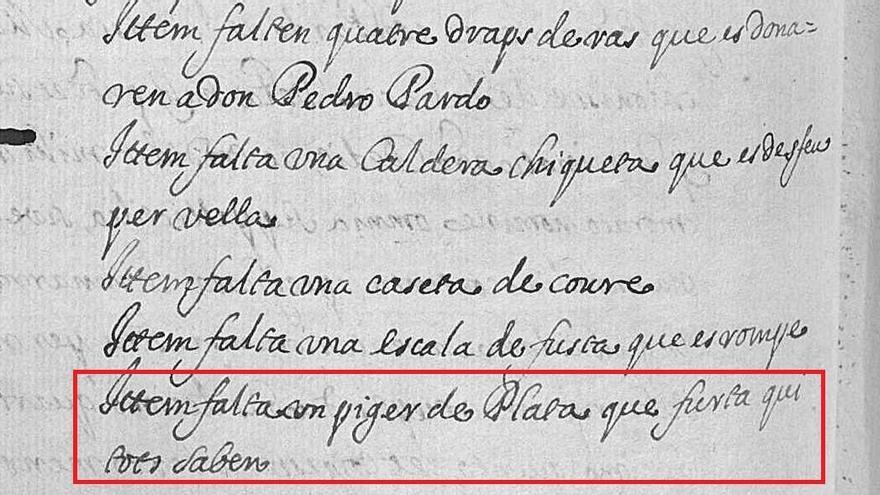 Ittem falten quatre draps de ras que es dona=
ren a don Pedro Pardo
Ittem falta una Caldera chiqueta que es desfeu
per vella
Ittem falta una caseta de coure
Ittem falta una escala de fusta que es rompe
Ittem falta un piger de Plata que furta qui
tots saben